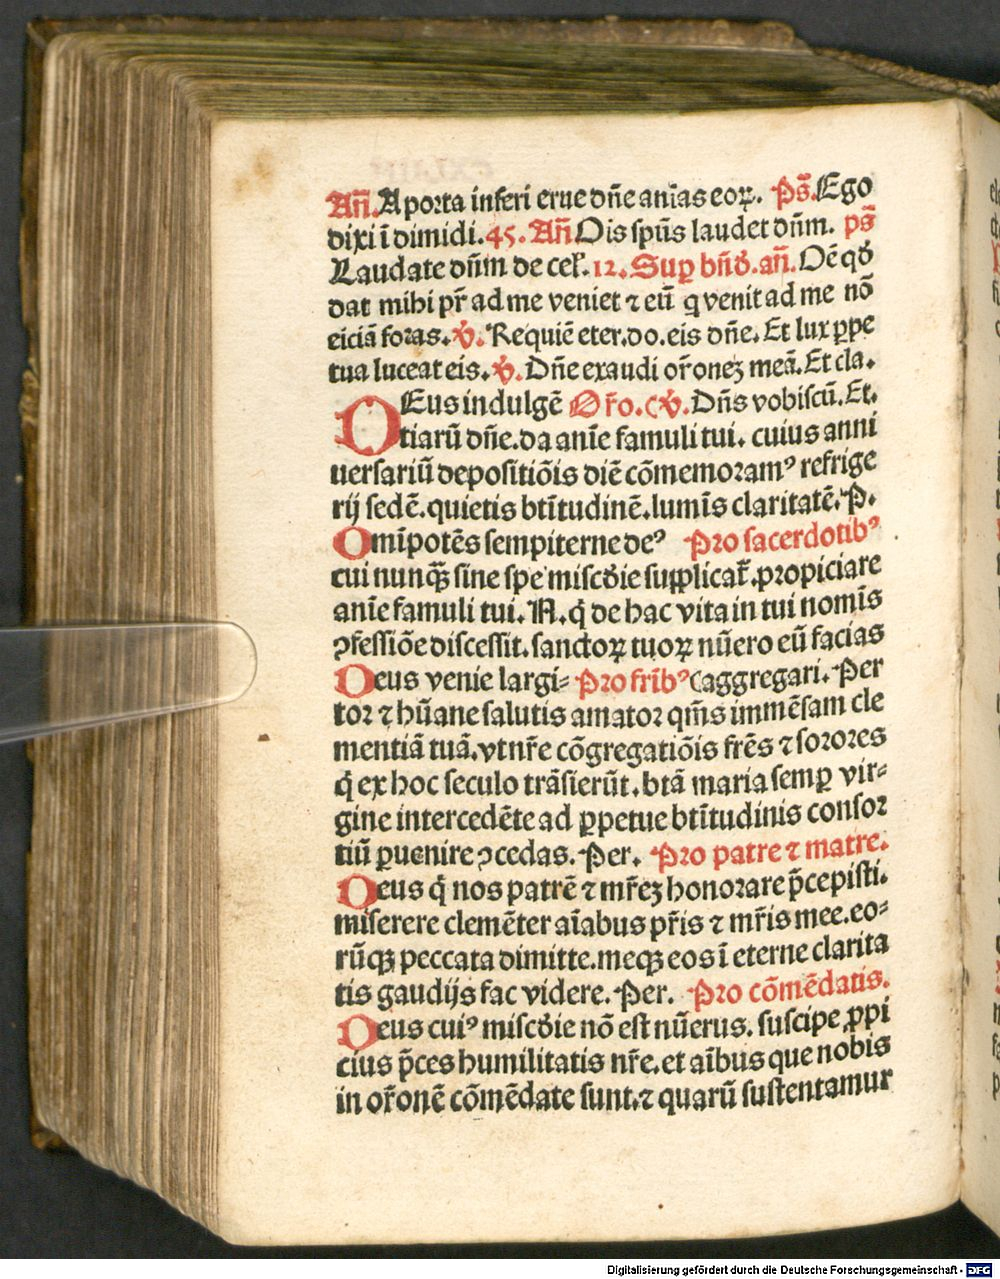 Añ. A porta inferi erue dñe anīas eoꝝ. Pš. Ego
dixi ī dimidi. 45. Añ Oīs spūs laudet dñm. pš
Laudate dñm de cel̄. 12. Suꝑ bñd̄. añ. Oē qd̄
dat mihi pr̄ ad me veniet ⁊ eū q venit ad me nō
eiciā foras. ꝟ. Requiē eter. do. eis dñe. Et lux ꝑpe
tua luceat eis. ꝟ. Dñe exaudi or̄onez meā. Et cla.
DEus indulgē Or̄o. (ꝟ. Dñs vobiscū. Et.
tiarū dñe. da anīe famuli tui. cuius anni
uersariū depositiōis diē cōmemoramꝰ refrige
rij sedē. quietis btītudinē. lumīs claritatē. P.
Omīpotēs sempiterne deꝰ Pro sacerdotibꝰ
cui nunqꝫ sine spe miscd̄ie supplicat̄. propiciare
anīe famuli tui. N. q̄ de hac vita in tui nomīs
ꝯfessiōe discessit. sanctoꝝ tuoꝝ nūero eū facias
Deus venie largi⸗ Pro frībꝰ (aggregari. Per
tor ⁊ hūane salutis amator qm̄s immēsam cle
mentiā tuā. vt nr̄e cōgregatiōis frēs ⁊ sorores
q̄ ex hoc seculo trāsierūt. btā maria semꝑ vir⸗
gine intercedēte ad ꝑpetue btītudinis consor
tiū ꝑuenire ꝯcedas. Per. Pro patre ⁊ matre.
Deus q̄ nos patrē ⁊ mr̄ez honorare p̄cepisti.
miserere clemēter aīabus pr̄is ⁊ mr̄is mee. eo⸗
rūqꝫ peccata dimitte. meqꝫ eos ī eterne clarita
tis gaudijs fac videre. Per. Pro cōmēdatis.
Deus cuiꝰ miscd̄ie nō est nūerus. suscipe ꝓpi
cius p̄ces humilitatis nr̄e. et aībus que nobis
in or̄onē cōmēdate sunt. ⁊ quarū sustentamur
Digitalisierung gefördert durch die Deutsche Forschungsgemeinschaft - DFG